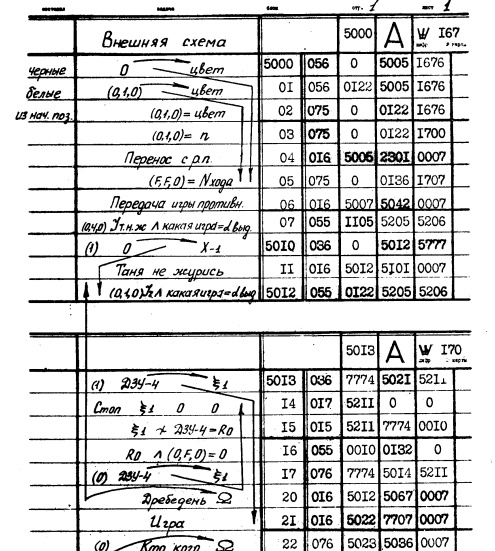 стр. 1 лист 1
Внешняя схема 5000 A W I67
черные 0 цвет 5000 056 0 5005 I676
белые (0,1,0) цвет 0I 056 0I22 5005 I676
из нач. поз. (0,1,0) = цвет 02 075 0 0I22 I676
(0,1,0) = n 03 075 0 0I22 I700
Перенос с р.п. 04 0I6 5005 230I 0007
(F,F,0) = N хода 05 075 0 0I36 I707
Передача игры противн. 06 0I6 5007 5042 0007
07 055 II05 5205 5206
(1) 0 X-1 50I0 036 0 50I2 5777
Таня не журись II 0I6 50I2 5I0I 0007
50I2 055 0I22 5205 5206
50I3 A W I70
(1) ДЗУ-4 ξ1 50I3 036 7774 502I
Стоп ξ1 0 0 I4 0I7 52II 0 0
ξ1 + ДЗУ-4 = R0 I5 0I5 52II 7774 00I0
R0 ∧ (0,F,0) = 0 I6 055 00I0 0I32 0
(0) ДЗУ-4 ξ1 I7 076 7774 50I4 52II
Дребедень Ω 20 0I6 50I2 5067 0007
Игра 2I 0I6 5022 7707 0007
(0) Кто кого Ω 22 076 5023 5036 0007